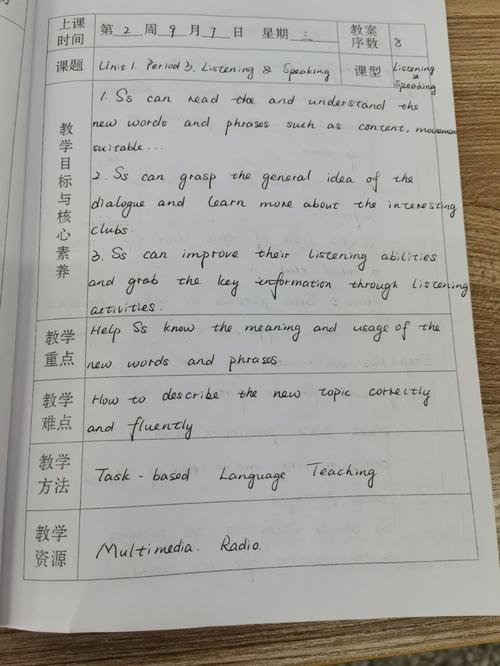 上课时间 第 2 周 9 月 7 日 星期 三 教案序数 8
课题 Unit 1. Period 3. Listening & Speaking 课型 Listening & Speaking
教学目标与核心素养
1. Ss can read the and understand the
new words and phrases such as content, movement
suitable...
2. Ss can grasp the general idea of the
dialogue and learn more about the interesting
clubs.
3. Ss can improve their listening abilities
and grab the key information through listening
activities.
教学重点
Help Ss know the meaning and usage of the
new words and phrases
教学难点
How to describe the new topic correctly
and fluently
教学方法
Task-based Language Teaching
教学资源
Multimedia. Radio.